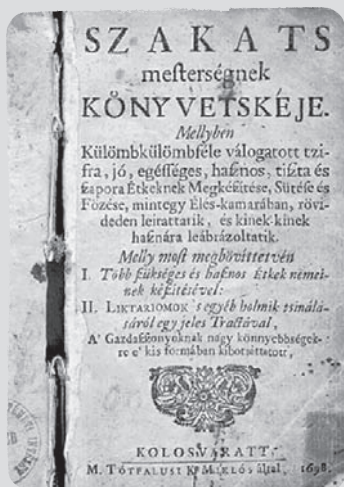 SZAKATS
mesterségnek
KÖNYVETSKÉJE.
Mellyben
Külömbkülömbféle válogatott tzi-
fra, jó, egésséges, hasznos, tiszta és
szapora Étkeknek Megkészitése, Sütése és
Fözése, mintegy Éles-kamarában, rövi-
dedén leirattatik, és kinek-kinek
hasznára leábrázoltatik.
Melly most megbövittetvén
I. Több szükséges és hasznos Étkek némei-
nek készitésével:
II. LIKTARIOMOK 's egyéb holmik tsinálá-
sáról egy jeles Tractával,
A' Gazdaszszonyoknak nagy könnyebbségek-
re e' kis formában kibotsáttatott,
KOLOSVARATT.
M. TÓTFALUSI K. MIKLÓS által, 1698.